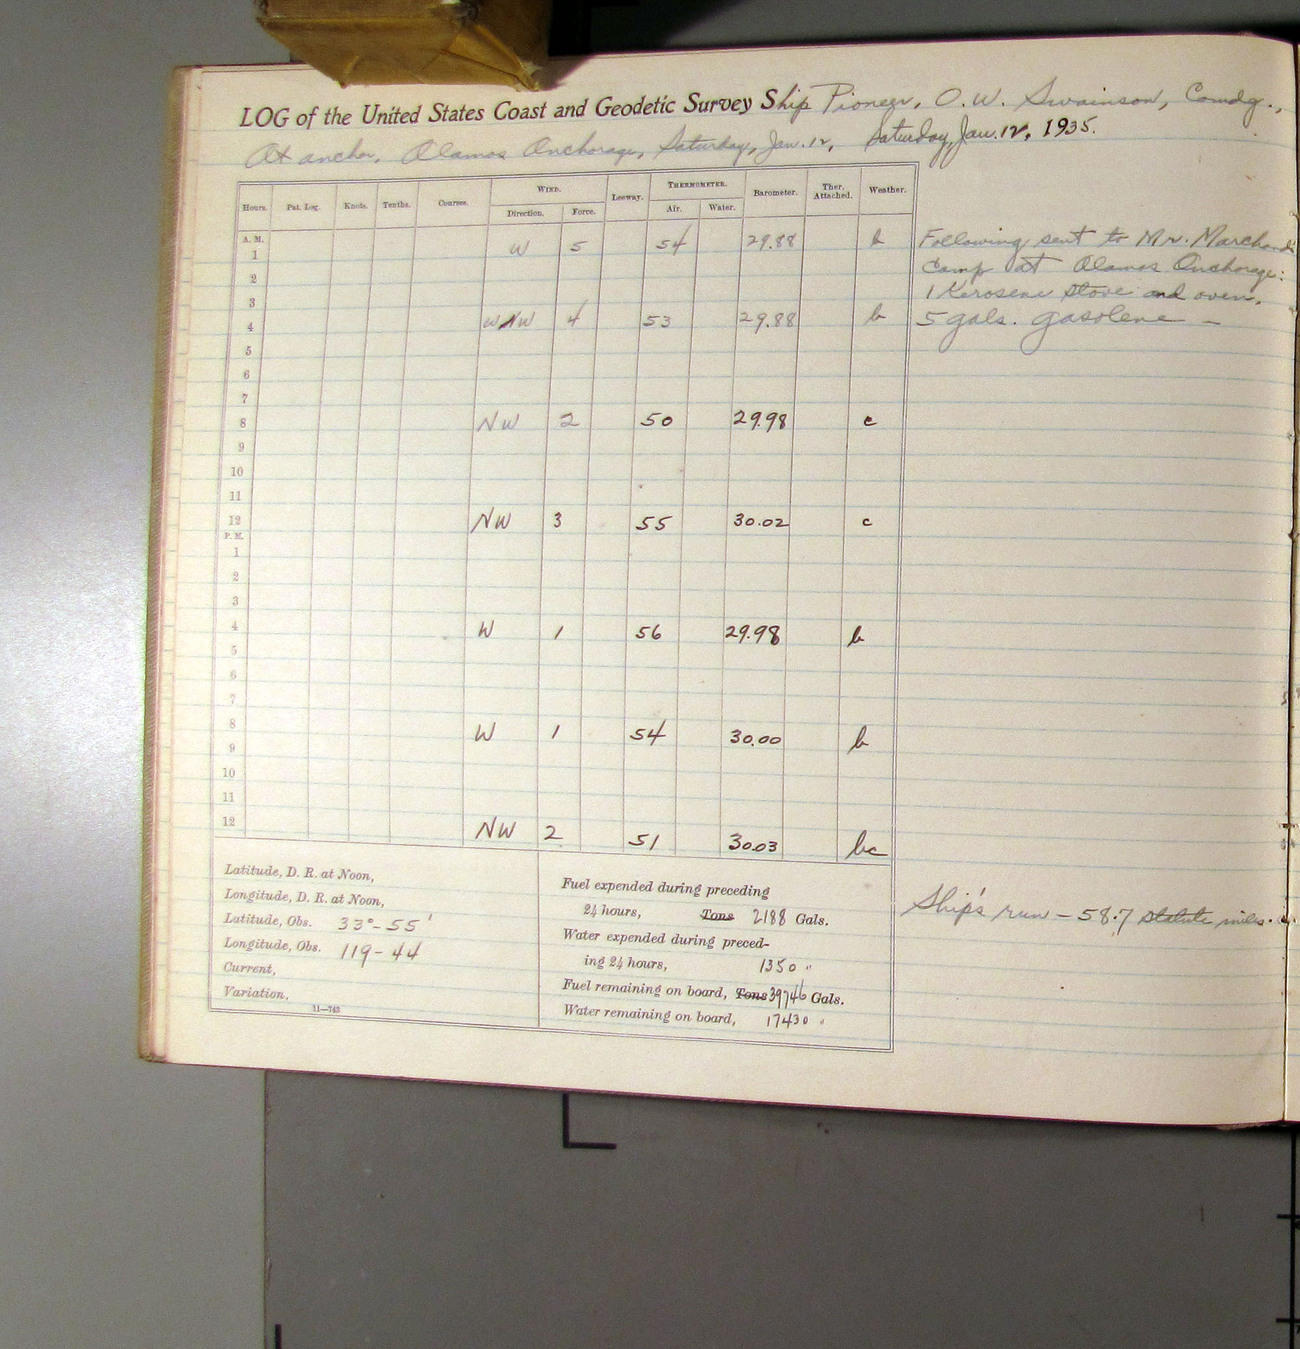 LOG of the United States Coast and Geodetic Survey Ship Pioneer, O. W. Swainson, Comdg.,
At anchor, Alamos Anchorage, Saturday, Jan. 12, Saturday, Jan. 12, 1935.
Hours. Pat. Log. Knots. Tenths. Courses. WIND. Leeway. THERMOMETER. Barometer. Ther. Attached. Weather.
Direction. Force. Air. Water.
A. M.
1 W 5 54 29.88 b
2
3
4 WNW 4 53 29.88 b
5
6
7
8 NW 2 50 29.98 c
9
10
11
12 NW 3 55 30.02 c
P. M.
1
2
3
4 W 1 56 29.98 b
5
6
7
8 W 1 54 30.00 b
9
10
11
12 NW 2 51 30.03 bc
Following sent to Mr. Marchand's
Camp at Alamos Anchorage:
1 Kerosene stove and oven.
5 gals. gasolene —
Latitude, D. R. at Noon,
Longitude, D. R. at Noon,
Latitude, Obs. 33°-55'
Longitude, Obs. 119-44
Current,
Variation,
11—743
Fuel expended during preceding
24 hours, Tons 2188 Gals.
Water expended during preced-
ing 24 hours, 1350 "
Fuel remaining on board, Tons 39746 Gals.
Water remaining on board, 17430 "
Ship's run — 58.7 statute miles.